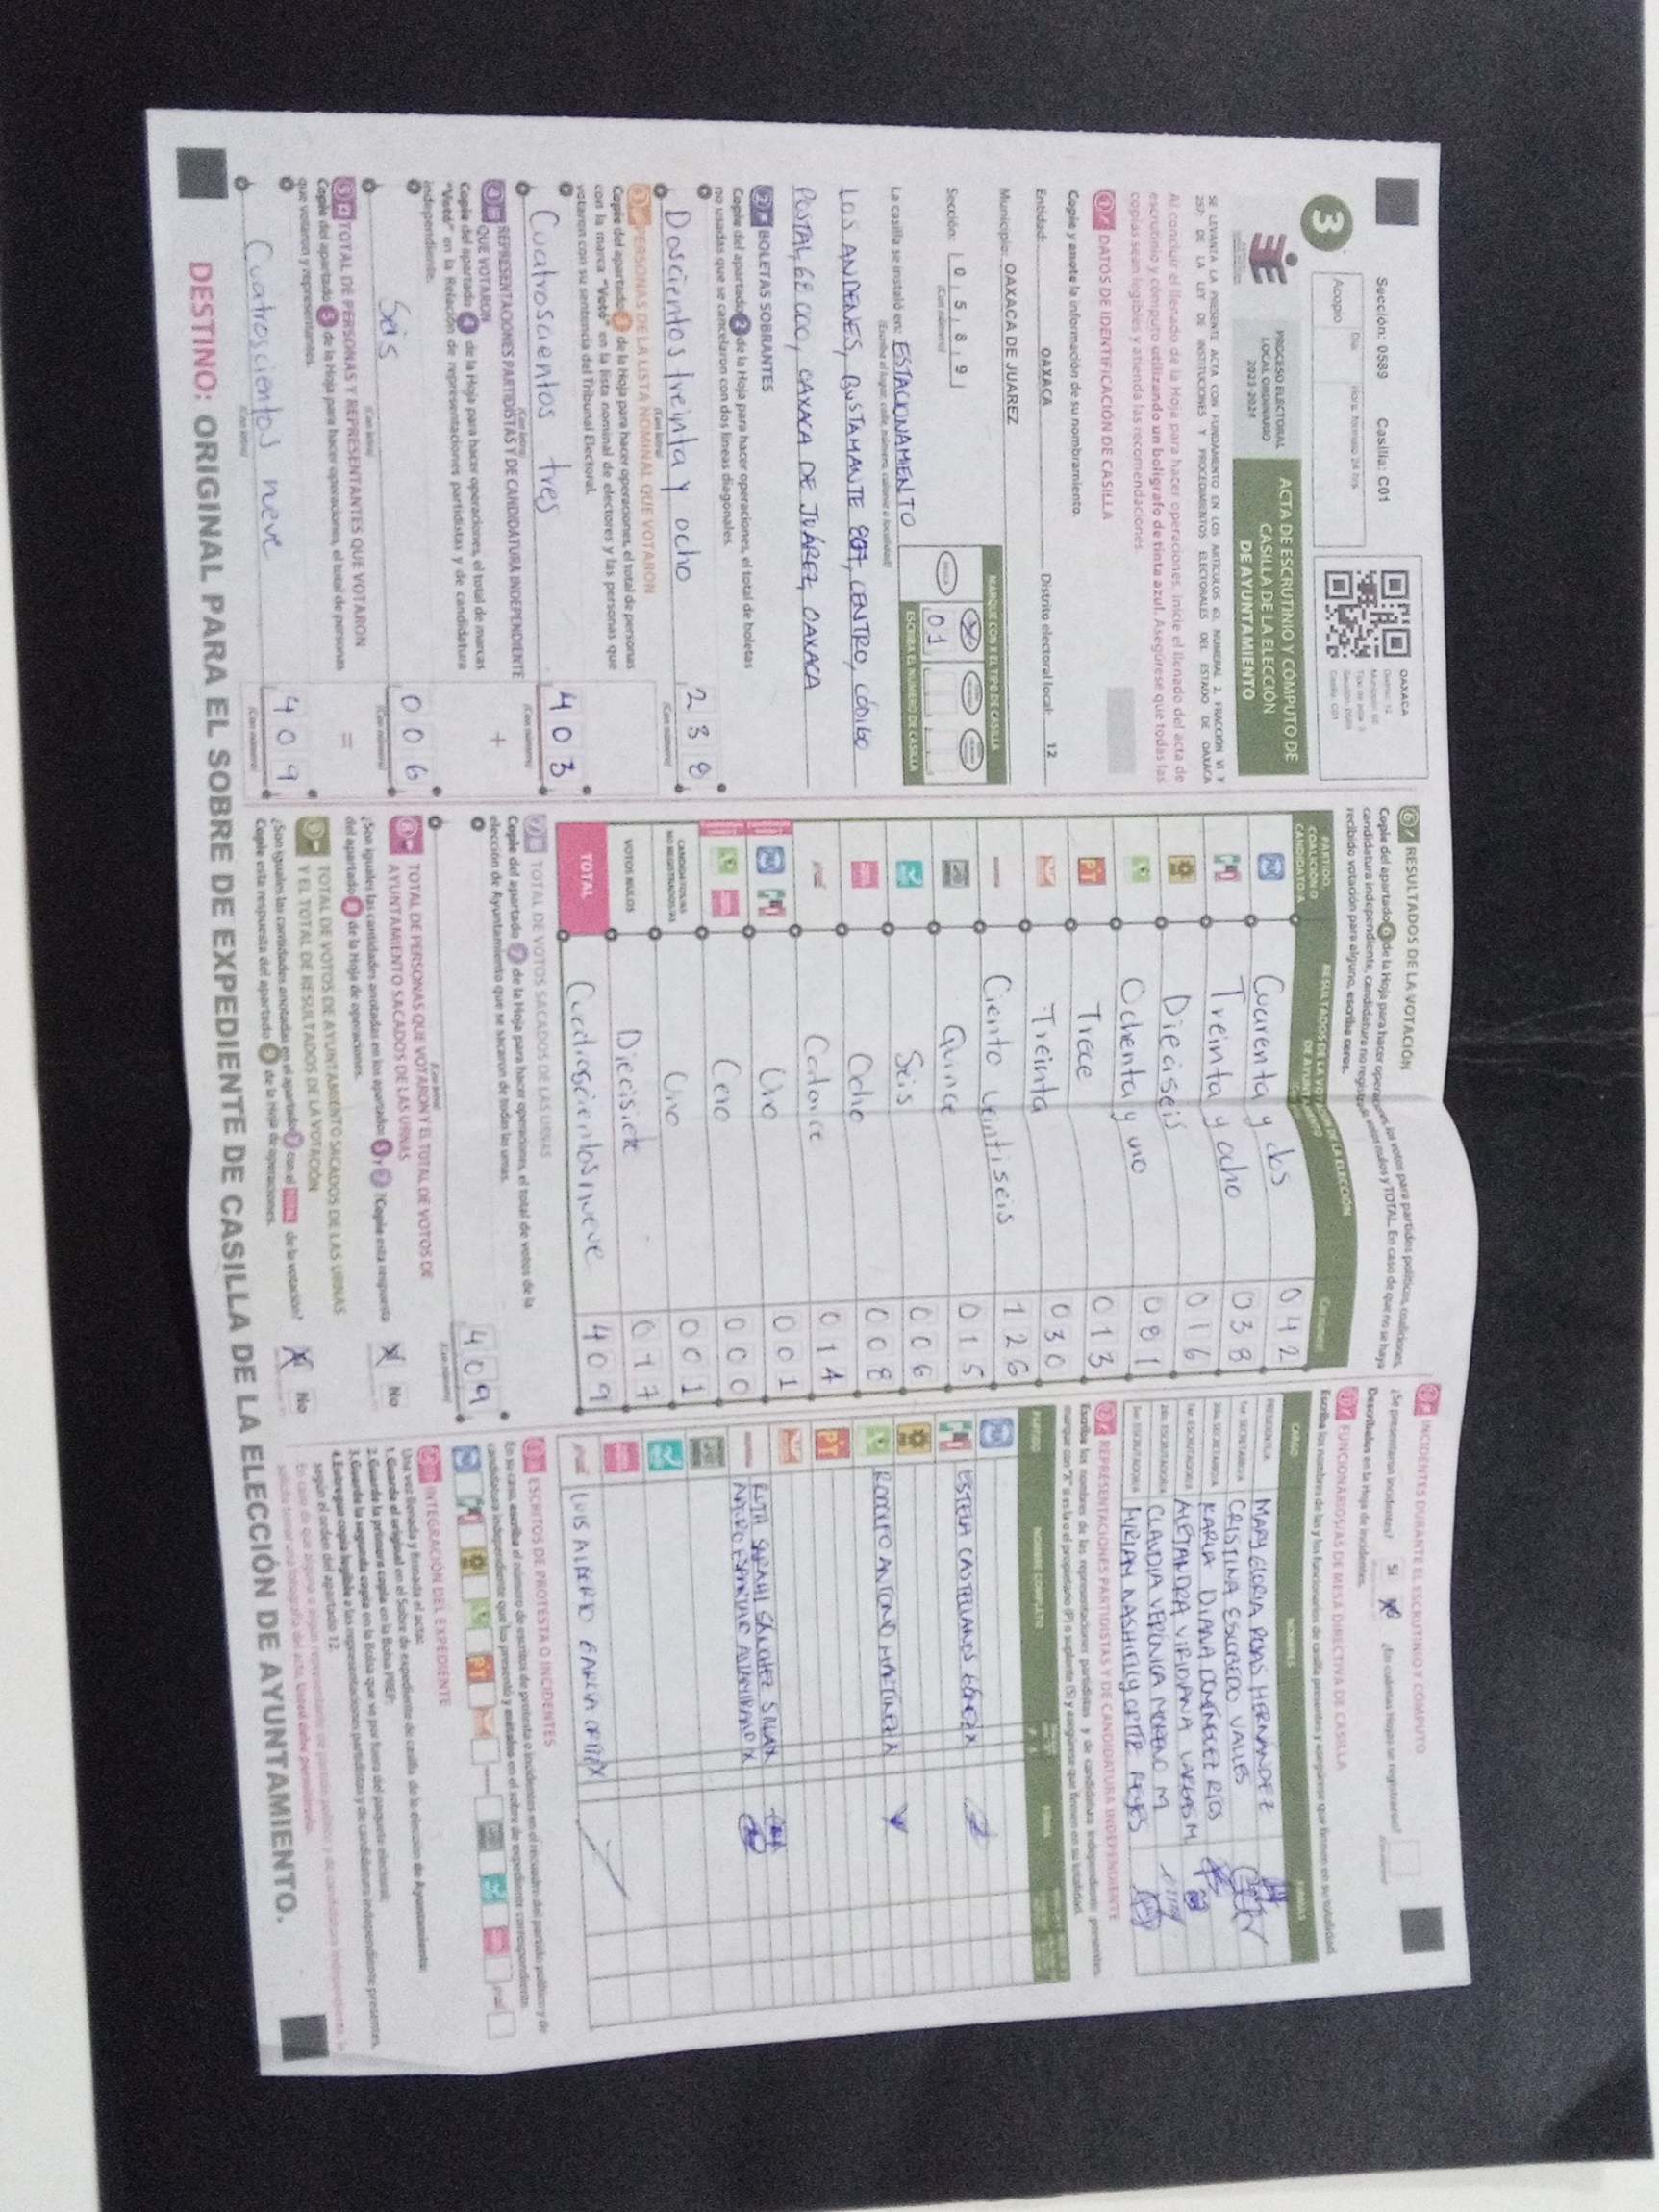 Sección: 0589 Casilla: C01
3
Acopio
Día
Hora: formato 24 hrs
OAXACA
PROCESO ELECTORAL
LOCAL ORDINARIO
2023-2024
ACTA DE ESCRUTINIO Y CÓMPUTO DE
CASILLA DE LA ELECCIÓN
DE AYUNTAMIENTO
SE LEVANTA LA PRESENTE ACTA CON FUNDAMENTO EN LOS ARTÍCULOS 63, NUMERAL 2, FRACCIÓN VI Y
257; DE LA LEY DE INSTITUCIONES Y PROCEDIMIENTOS ELECTORALES DEL ESTADO DE OAXACA
Al concluir el llenado de la Hoja para hacer operaciones, inicie el llenado del acta de
escrutinio y cómputo utilizando un bolígrafo de tinta azul. Asegúrese que todas las
copias sean legibles y atienda las recomendaciones
1 DATOS DE IDENTIFICACIÓN DE CASILLA
Copie y anote la información de su nombramiento.
Entidad: OAXACA Distrito electoral local: 12
Municipio: OAXACA DE JUAREZ
Sección: 0 5 8 9
(Con número)
MARQUE CON X EL TIPO DE CASILLA
ESCRIBA EL NÚMERO DE CASILLA
01
La casilla se instaló en: ESTACIONAMIENTO
LOS ANDENES, BUSTAMANTE 807, CENTRO, CÓDIGO
POSTAL 68000, OAXACA DE JUÁREZ, OAXACA
2 BOLETAS SOBRANTES
Copie del apartado 2 de la Hoja para hacer operaciones, el total de boletas
no usadas que se cancelaron con dos líneas diagonales.
Doscientos treinta y ocho 238
(Con letra) (Con número)
3 PERSONAS DE LA LISTA NOMINAL QUE VOTARON
Copie del apartado 3 de la Hoja para hacer operaciones, el total de personas
con la marca "Votó" en la lista nominal de electores y las personas que
votaron con su sentencia del Tribunal Electoral.
Cuatroscientos tres 403
(Con letra) (Con número)
+
4 REPRESENTACIONES PARTIDISTAS Y DE CANDIDATURA INDEPENDIENTE
QUE VOTARON
Copie del apartado 4 de la Hoja para hacer operaciones, el total de marcas
"Votó" en la Relación de representaciones partidistas y de candidatura
independiente.
Seis 006
(Con letra) (Con número)
=
5 TOTAL DE PERSONAS Y REPRESENTANTES QUE VOTARON
Copie del apartado 5 de la Hoja para hacer operaciones, el total de personas
que votaron y representantes.
Cuatroscientos neve 409
(Con letra) (Con número)
6 RESULTADOS DE LA VOTACIÓN
Copie del apartado 6 de la Hoja para hacer operaciones, los votos para partidos políticos, coaliciones,
candidatura independiente, candidatura no registrada, votos nulos y TOTAL. En caso de que no se haya
recibido votación para alguno, escriba ceros.
PARTIDO, COALICIÓN O CANDIDATO/A
RESULTADOS DE LA VOTACIÓN DE LA ELECCIÓN DE AYUNTAMIENTO
Cuarenta y dos 042
Treinta y ocho 038
Dieciseis 016
Ochenta y uno 081
PT Trece 013
Treinta 030
Ciento veintiseis 126
Quince 015
Seis 006
Ocho 008
Catorce 014
Uno 001
Cero 000
CANDIDATOS/AS NO REGISTRADOS/AS Uno 001
VOTOS NULOS Diecisiete 017
TOTAL Cuatroscientos nueve 409
7 TOTAL DE VOTOS SACADOS DE LAS URNAS
Copie del apartado 7 de la Hoja para hacer operaciones, el total de votos de la
elección de Ayuntamiento que se sacaron de todas las urnas.
409
(Con letra) (Con número)
8 TOTAL DE PERSONAS QUE VOTARON Y EL TOTAL DE VOTOS DE
AYUNTAMIENTO SACADOS DE LAS URNAS
¿Son iguales las cantidades anotadas en los apartados 5 y 7? (Copie esta respuesta
del apartado 8 de la Hoja de operaciones.
X No
9 TOTAL DE VOTOS DE AYUNTAMIENTO SACADOS DE LAS URNAS
Y EL TOTAL DE RESULTADOS DE LA VOTACIÓN
¿Son iguales las cantidades anotadas en el apartado 7 con el TOTAL de la votación?
Copie esta respuesta del apartado 9 de la Hoja de operaciones.
X No
10 INCIDENTES DURANTE EL ESCRUTINIO Y CÓMPUTO
¿Se presentaron incidentes? Sí X ¿En cuántas Hojas se registraron?
Descríbalos en la Hoja de incidentes.
11 FUNCIONARIOS/AS DE MESA DIRECTIVA DE CASILLA
Escriba los nombres de las y los funcionarios de casilla presentes y asegúrese que firmen en su totalidad.
CARGO NOMBRES FIRMAS
PRESIDENTE/A MARY GLORIA ROJAS HERNANDEZ
1er. SECRETARIO/A CRISTINA ESCOBEDO VALLES
2do. SECRETARIO/A KARLA DIANA DOMÍNGUEZ RIOS
1er. ESCRUTADOR/A ALEJANDRA VIRIDIANA VARGAS M
2do. ESCRUTADOR/A CLAUDIA VERONICA MORENO M
3er. ESCRUTADOR/A
12 REPRESENTACIONES PARTIDISTAS Y DE CANDIDATURA INDEPENDIENTE
Escriba los nombres de las representaciones partidistas y de candidatura independiente presentes,
marque con "X" si es la o el propietario (P) o suplente (S) y asegúrese que firmen en su totalidad.
PARTIDO NOMBRE COMPLETO
ESTELA CASTELLANOS X
RODOLFO ANTONIO MARTÍNEZ X
PT
RUTH SARAHI SÁNCHEZ
LUIS ALBERTO GARCIA ORTIZ X
13 ESCRITOS DE PROTESTA O INCIDENTES
En su caso, escriba el número de escritos de protesta o incidentes en el recuadro del partido político y de
candidatura independiente que los presentó y métalos en el sobre de expediente correspondiente
PT
14 INTEGRACIÓN DEL EXPEDIENTE
Una vez llenada y firmada el acta:
1. Guarde el original en el Sobre de expediente de casilla de la elección de Ayuntamiento;
2. Guarde la primera copia en la Bolsa PREP;
3. Guarde la segunda copia en la Bolsa que va por fuera del paquete electoral;
4. Entregue copia legible a las representaciones partidistas y de candidatura independiente presentes,
según el orden del apartado 12.
DESTINO: ORIGINAL PARA EL SOBRE DE EXPEDIENTE DE CASILLA DE LA ELECCIÓN DE AYUNTAMIENTO.